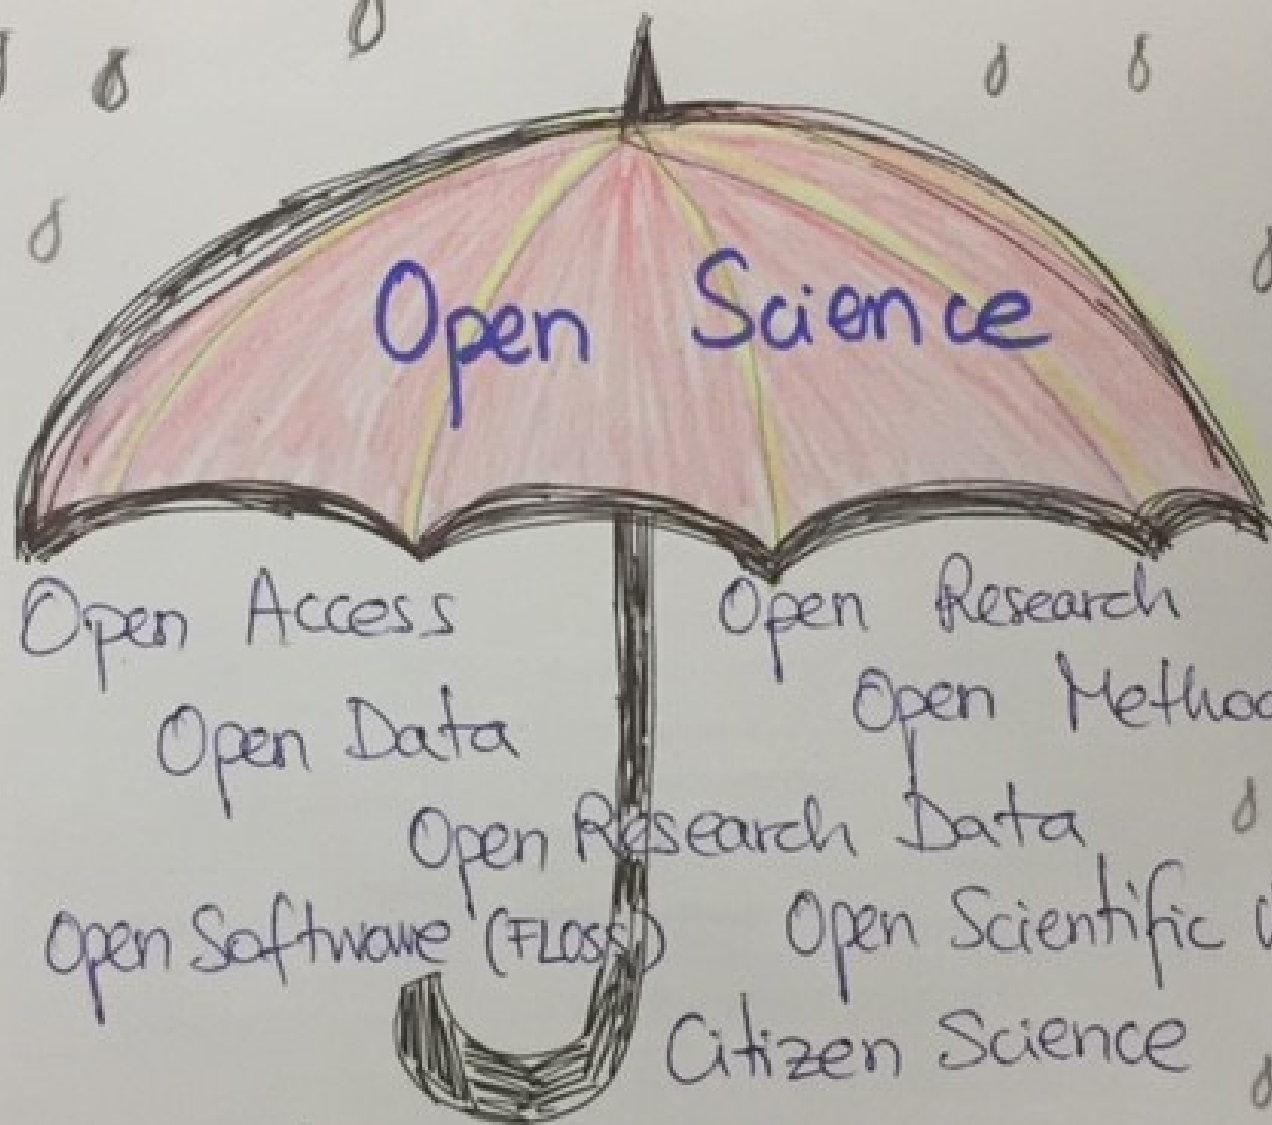 Open Science
Open Access
Open Research
Open Data
Open
Open Research Data
Open Software (FLOSS)
Open Scientific
Citizen Science